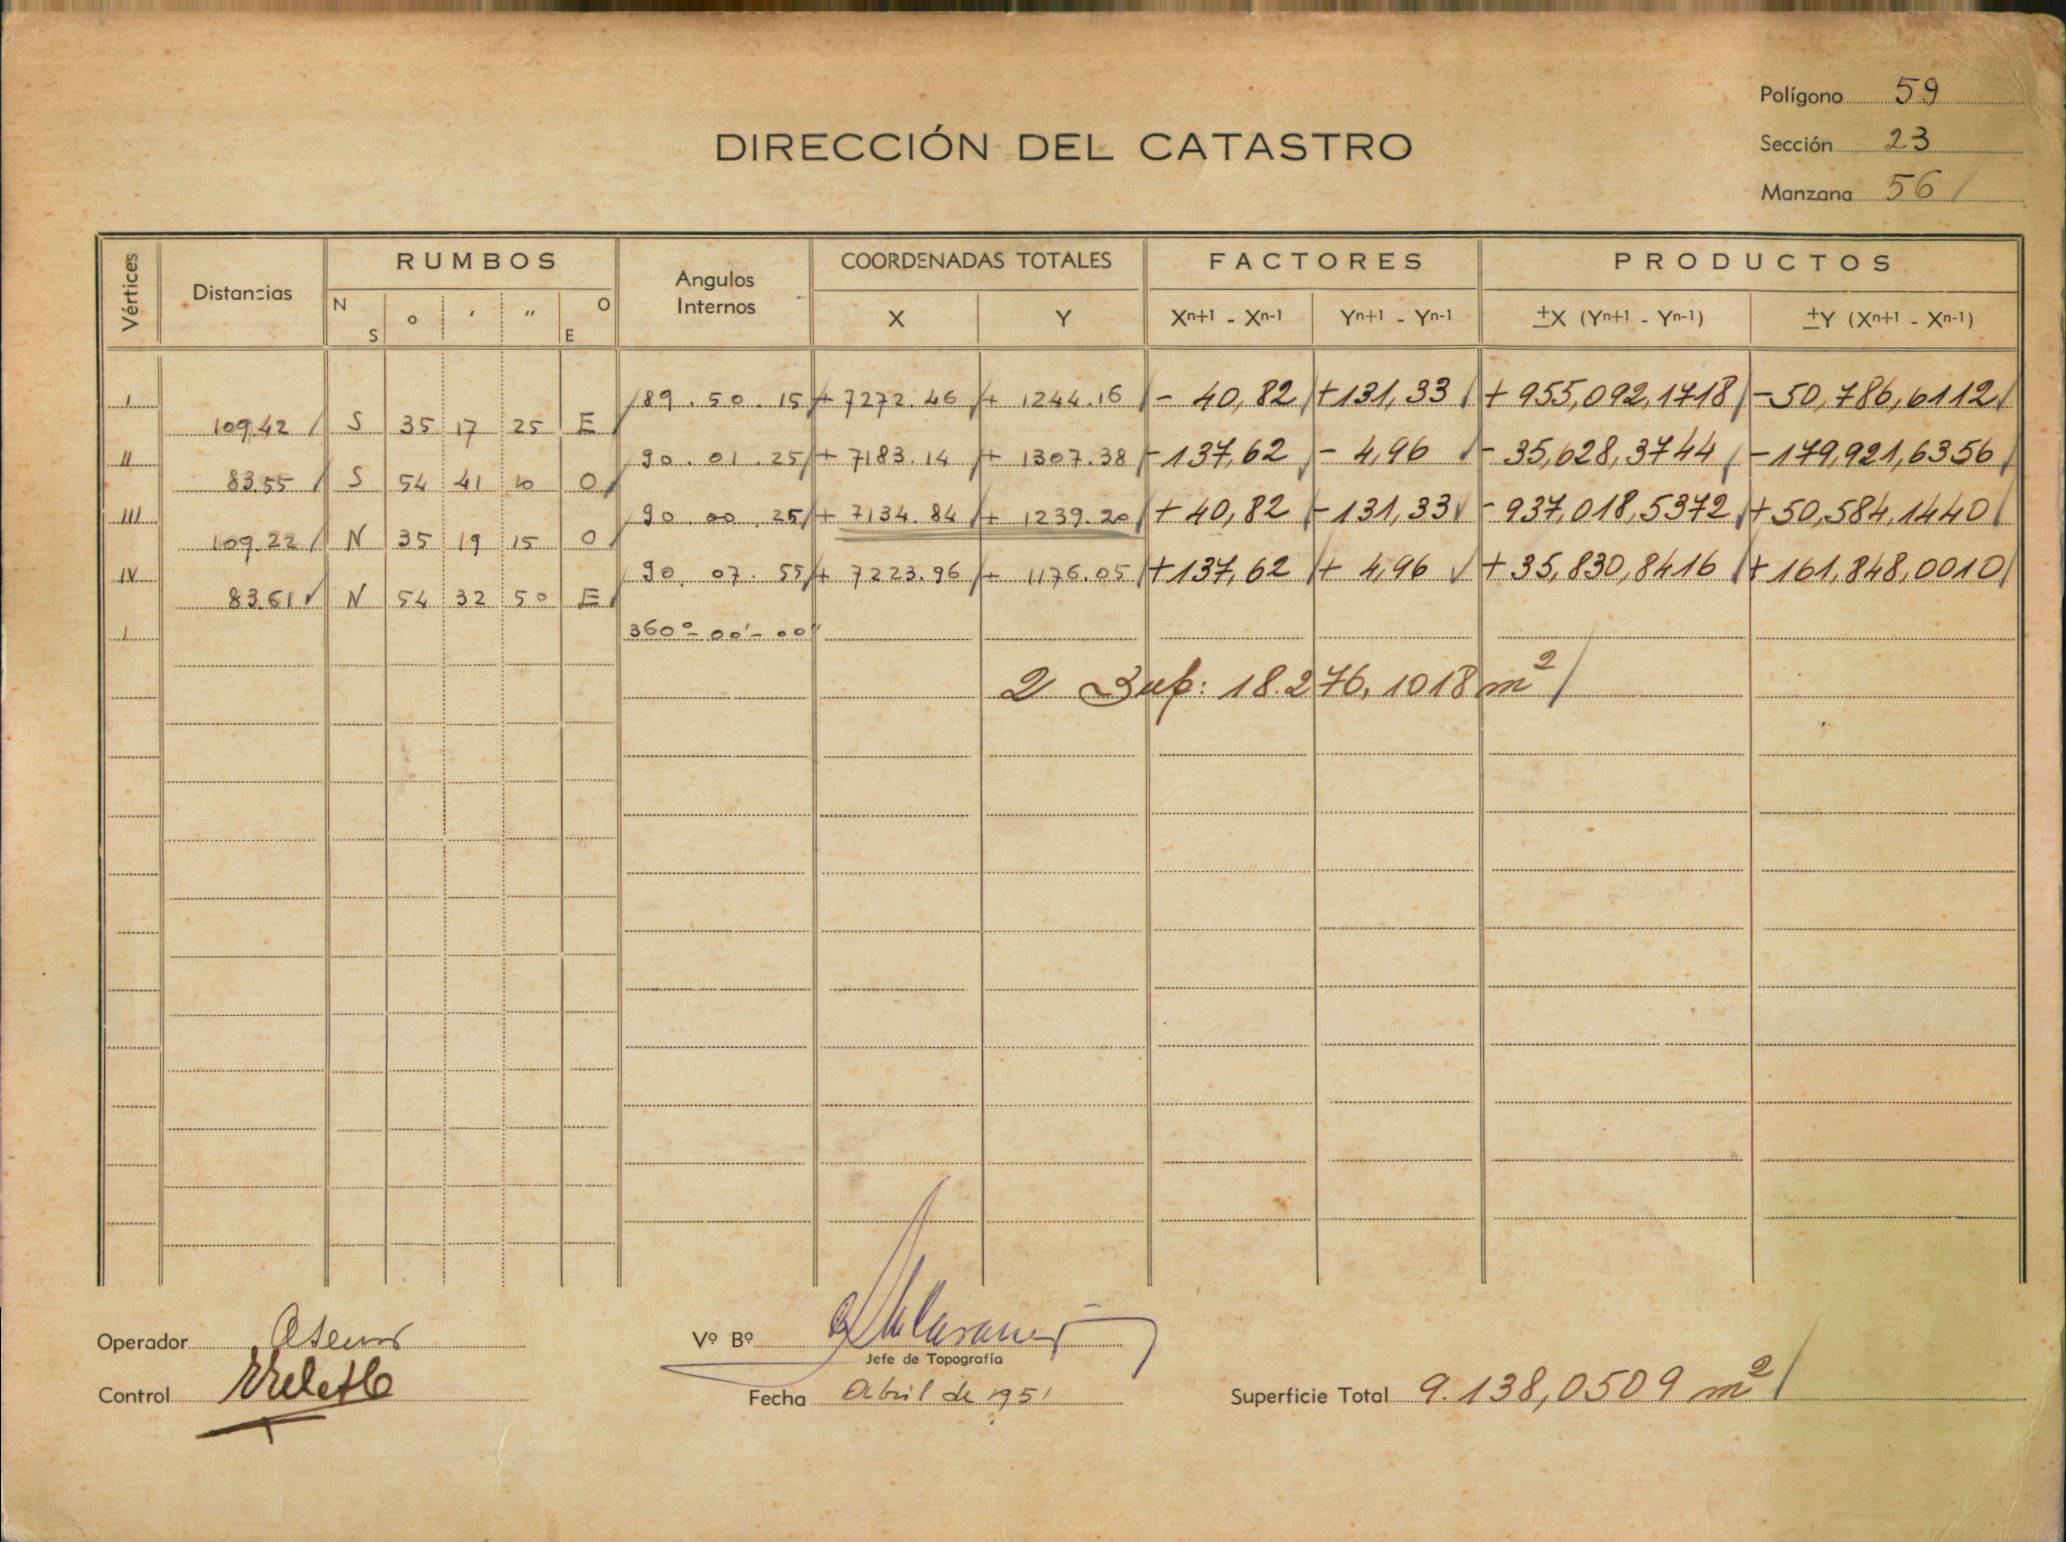 Polígono 59
DIRECCIÓN DEL CATASTRO
Sección 23
Manzana 56
Vértices Distancias RUMBOS Angulos Internos COORDENADAS TOTALES FACTORES PRODUCTOS
N S o ′ ″ O E X Y Xⁿ⁺¹ - Xⁿ⁻¹ Yⁿ⁺¹ - Yⁿ⁻¹ ±X (Yⁿ⁺¹ - Yⁿ⁻¹) ±Y (Xⁿ⁺¹ - Xⁿ⁻¹)
I 89.50.15 + 7272.46 + 1244.16 - 40,82 +131,33 + 955,092,1718 -50,786,6112
109.42 S 35 17 25 E
II 90.01.25 + 7183.14 + 1307.38 -137,62 - 4,96 - 35,628,3744 -179,921,6356
83.55 S 54 41 10 O
III 90.00.25 + 7134.84 + 1239.20 +40,82 -131,33 - 937,018,5372 +50,584,1440
109.22 N 35 19 15 O
IV 90.07.55 + 7223.96 + 1176.05 +137,62 + 4,96 + 35,830,8416 +161,848,0010
83.61 N 54 32 50 E
I 360°-00'-00"
2 Sup: 18.276,1018 m²
Operador
Vº Bº
Jefe de Topografía
Control
Fecha Abril de 1951
Superficie Total 9.138,0509 m²